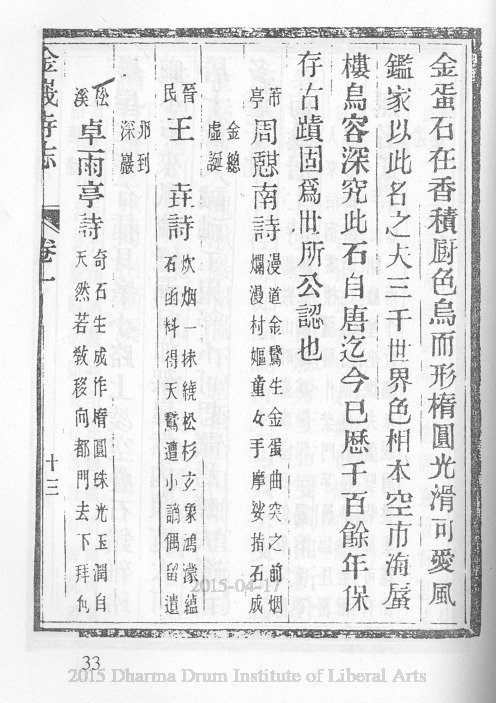 金蛋石在香積厨色烏而形橢圓光滑可愛風
鑑家以此名之大三千世界色相本空市海蜃
樓鳥容深究此石自唐迄今已歷千百餘年保
存古蹟固爲世所公認也
芾亭周懟南詩漫道金鵞生金蛋曲突之前烟
爛漫村嫗童女手摩娑指石成
金總虛誕
晉民王垚詩炊烟一抹繞松杉玄象鴻濛蘊
石函料得天鵞遭小謫偶留遺
卵到深巖
松溪卓雨亭詩奇石生成作橢圓珠光玉潤自
天然若敎移向都門去下拜
金峩寺志
卷一
十三
33
2015-04-17
2015 Dharma Drum Institute of Liberal Arts